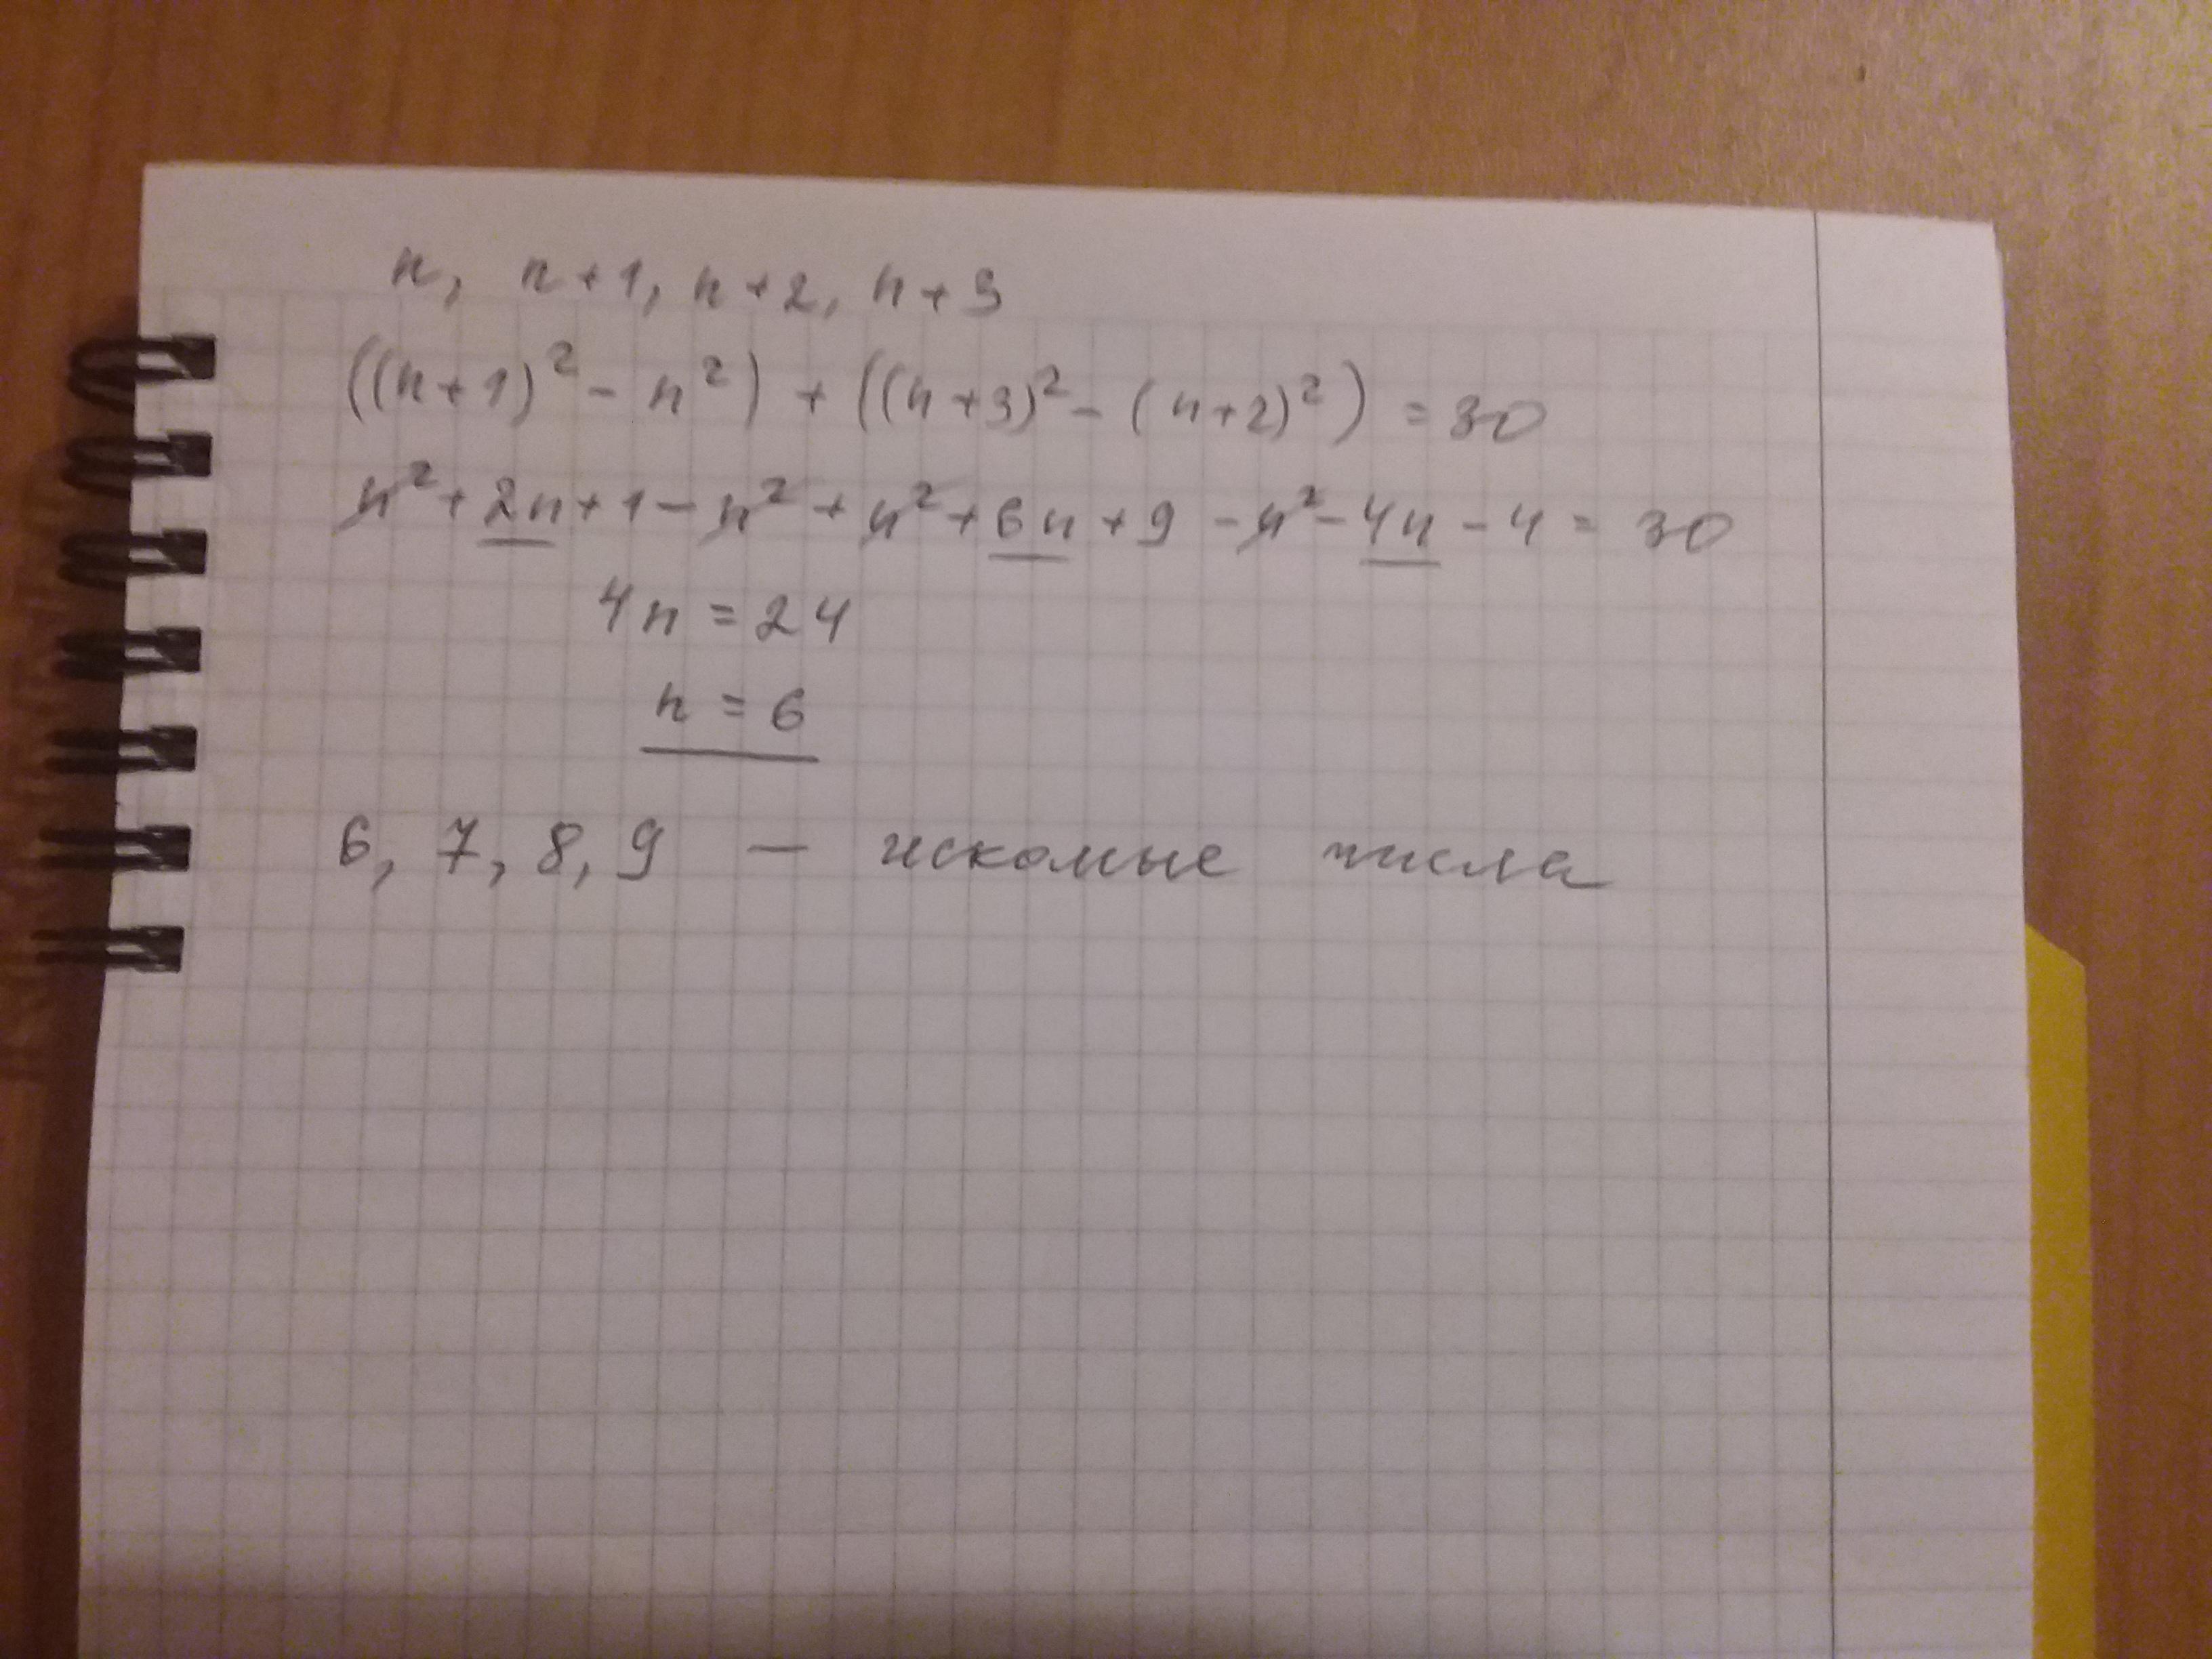 n, n+1, n+2, n+3
((n+1)² - n²) + ((n+3)² - (n+2)²) = 30
n² + 2n + 1 - n² + n² + 6n + 9 - n² - 4n - 4 = 30
4n = 24
n = 6
6, 7, 8, 9 — искомые числа